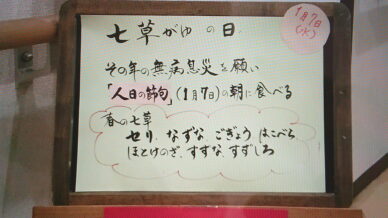 七草がゆの日
1月7日
(火)
その年の無病息災を願い
「人日の節句」(1月7日)の朝に食べる
春の七草
せり、なずな ごぎょう はこべら
ほとけのざ、すずな、すずしろ